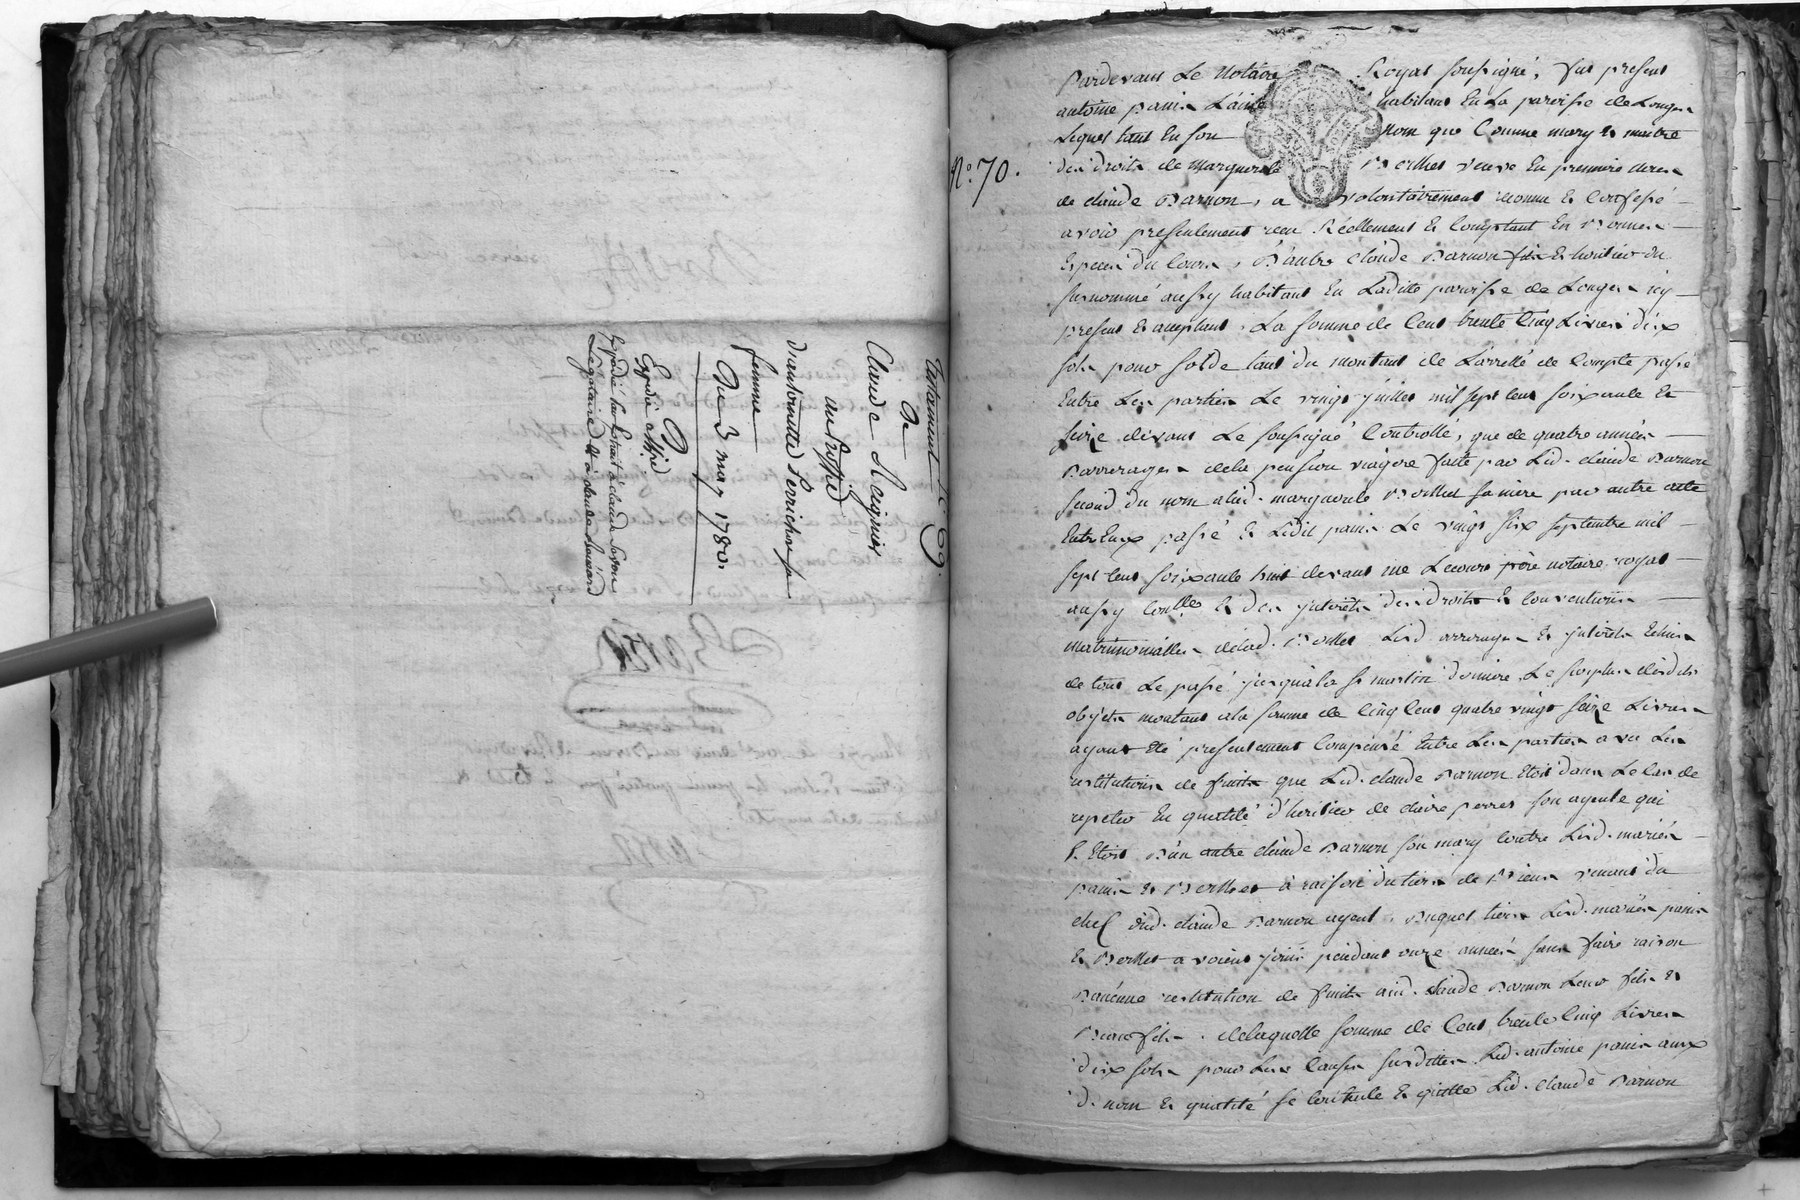 Testament N.° 69.
De
Claude
au Proffit
d'antoinette Perrichon sa
femme
Du 3 may 1780.
Expédié
Expedié par Extrait à claude
Legataire
N.° 70.
Pardevant Le Notaire Royal soussigné, fut present
antoine panis L'ainé habitant En La paroisse de Longes
Lequel tant En son Nom que Comme mary & maitre
des droits de marguerite veuve En premiere
de claude Barnon, a volontairement reconnu & Confessé
avoir presentement recu Réellement & Comptant En Bonnes
Especes du Cours, D'autre Claude Barnon fils & heritier du
surnommé aussy habitant En Laditte paroisse de Longes icy
present & acceptant, La somme de Cent trente Cinq Livres dix
sols pour solde tant du montant de L'arretté de Compte passé
Entre Les parties Le vingt juillet mil sept Cent soixante Et
seize devant Le soussigné Controllé, que de quatre années
D'arrerages de la pension viagere faitte par Led. claude Barnon
second du nom a lad. marguerite sa mere par autre acte
Entr'Eux passé & Ledit panis Le vingt six septembre mil
sept Cent soixante huit devant me Lecourt père notaire royal
aussy Conllé & des jnterets des droits & Conventions
matrimonialles de lad. Lesd. arrerages & jnterets Echus
de tout Le passé jusqu'a la st martin derniere, Le surplus desdits
objets montant a la somme de Cinq Cent quatre vingt seize Livres
ayant Eté presentement Compensé Entre Les parties avec Les
restitutions de fruits que Led. claude Barnon Etoit dans Le Cas de
repeter En qualité d'heritier de claire perret son ayeule qui
L'Etoit D'un autre claude Barnon son mary Contre Lesd. mariés
panis & à raison du tiers de Biens venant du
chef dud. claude Barnon ayeul, Duquel tiers Lesd. mariés panis
& avoient joui pendant onze années sans faire raison
D'aucune restitution de fruits aud. claude Barnon Leur fils &
Beaufils. de laquelle somme de Cent trente Cinq Livres
dix sols pour Les Causes susdittes Led. antoine panis aux
d. nom & qualité se Contente & quitte Led. claude Barnon